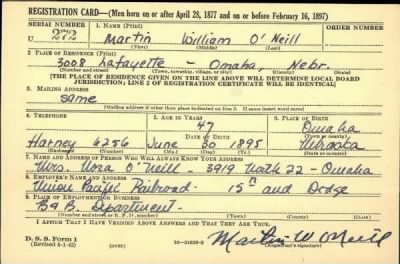 REGISTRATION CARD—(Men born on or after April 28, 1877 and on or before February 16, 1897)
SERIAL NUMBER 1. NAME (Print) ORDER NUMBER
U 272 Martin William O'Neill
(First) (Middle) (Last)
2. PLACE OF RESIDENCE (Print)
3008 Lafayette - Omaha, Nebr.
(Number and street) (Town, township, village, or city) (County) (State)
[THE PLACE OF RESIDENCE GIVEN ON THE LINE ABOVE WILL DETERMINE LOCAL BOARD
JURISDICTION; LINE 2 OF REGISTRATION CERTIFICATE WILL BE IDENTICAL]
3. MAILING ADDRESS
Same
[Mailing address if other than place indicated on line 2. If same insert word same]
4. TELEPHONE 5. AGE IN YEARS 6. PLACE OF BIRTH
47 Omaha
DATE OF BIRTH (Town or county)
Harney 6256 June 30 1895 Nebraska
(Exchange) (Number) (Mo.) (Day) (Yr.) (State or country)
7. NAME AND ADDRESS OF PERSON WHO WILL ALWAYS KNOW YOUR ADDRESS
Mrs. Nora O'Neill - 3919 North 22 - Omaha
8. EMPLOYER'S NAME AND ADDRESS
Union Pacific Railroad - 15th and Dodge
9. PLACE OF EMPLOYMENT OR BUSINESS
B&B. Department -
(Number and street or R. F. D. number) (Town) (County) (State)
I AFFIRM THAT I HAVE VERIFIED ABOVE ANSWERS AND THAT THEY ARE TRUE.
D. S. S. Form 1
(Revised 4-1-42) (over) 16—21630-2 Martin W O'Neill
(Registrant's signature)